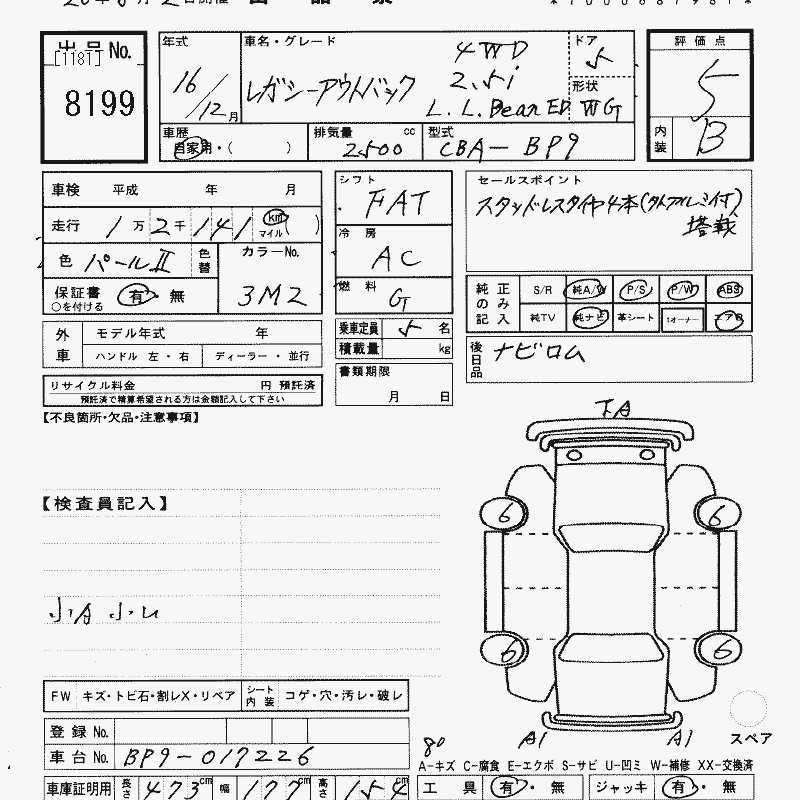 出品No. [1181]
8199
年式 16/12月
車名・グレード レガシーアウトバック
4WD
2.5i
L.L.Bean ED
ドア 5
形状 WG
車歴 自家用・( )
排気量 cc 2500
型式 CBA-BP9
評価点 5
内装 B
車検 平成 年 月
走行 1万2千141 km マイル ( )
色 パールII 色替
カラーNo. 3M2
保証書 有・無
○を付ける
シフト FAT
冷房 AC
燃料 G
セールスポイント
スタッドレスタイヤ4本(タイヤアルミ付)
塔載
純正のみ記入
S/R 純A/W P/S P/W ABS
純TV 純ナビ 革シート 1オーナー エアB
後日品 ナビロム
外車 モデル年式 年
ハンドル 左・右 ディーラー・並行
乗車定員 5 名
積載量 kg
書類期限
月 日
リサイクル料金 円 預託済
預託済で精算希望される方は金額記入して下さい
【不良箇所・欠品・注意事項】
【検査員記入】
小A 小凹
FW キズ・トビ石・割レX・リペア
シート内装 コゲ・穴・汚レ・破レ
登録 No.
車台 No. BP9-017226
車庫証明用 長さ 473cm 幅 177cm 高さ 154cm
6 6
6 6
A1 A1
スペア
A-キズ C-腐食 E-エクボ S-サビ U-凹ミ W-補修 XX-交換済
工具 有・無 ジャッキ 有・無